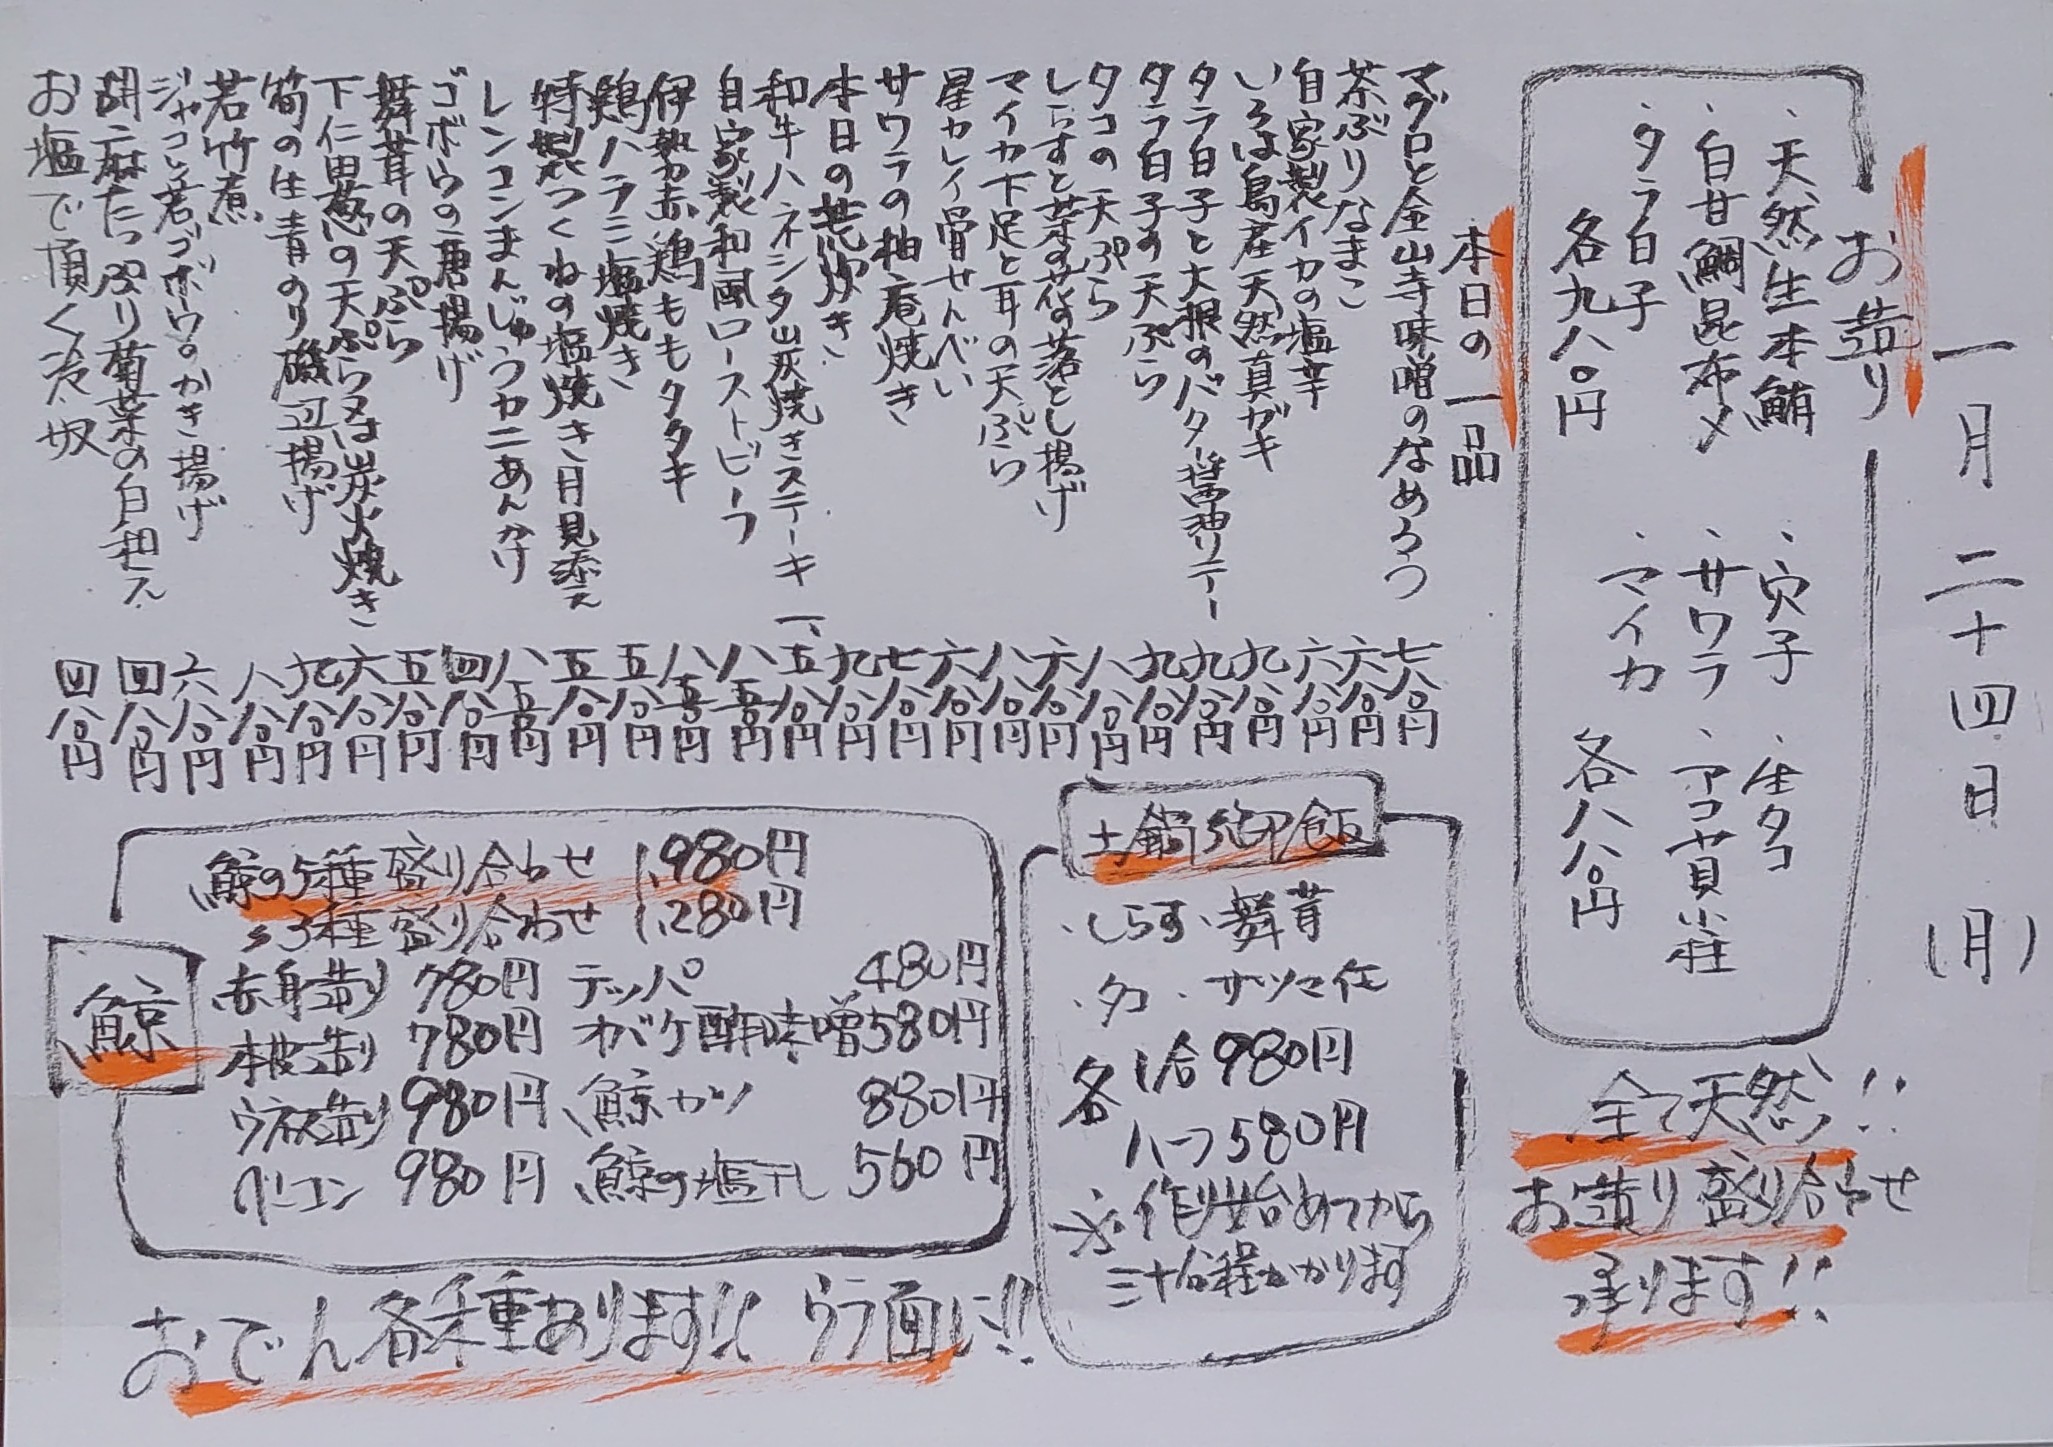 一月二十四日(月)
お造り
・天然生本鮪
・白甘鯛昆布〆
・タラ白子
各九八〇円
・穴子
・サワラ
・マイカ
・生タコ
・アコヤ貝小柱
各八八〇円
全て天然!!
お造り盛り合わせ
承ります!!
本日の一品
マグロと金山寺味噌のなめろう 七八〇円
茶ぶりなまこ 六八〇円
自家製イカの塩辛 六八〇円
いろは島産天然真ガキ 九八〇円
タラ白子と大根のバター醤油ソテー 九八〇円
タラ白子の天ぷら 九八〇円
タコの天ぷら 八八〇円
しらすと菜の花の落とし揚げ 六八〇円
マイカ下足と耳の天ぷら 八八〇円
星カレイ骨せんべい 六八〇円
サワラの柚庵焼き 七八〇円
本日の荒炊き 九八〇円
和牛ハネシタ炭焼きステーキ 一、五八〇円
自家製和風ローストビーフ 八五〇円
伊勢赤鶏ももタタキ 八五〇円
鶏ハラミ塩焼き 五八〇円
特製つくねの塩焼き月見添え 五八〇円
レンコンまんじゅうカニあんかけ 八五〇円
ゴボウの唐揚げ 四八〇円
舞茸の天ぷら 五八〇円
下仁田葱の天ぷら又は炭火焼き 六八〇円
筍の生青のり磯辺揚げ 九八〇円
若竹煮 八八〇円
ジャコと若ゴボウのかき揚げ 六八〇円
胡麻たっぷり菊菜の白和え 四八〇円
お塩で頂く冷奴 四八〇円
土鍋御飯
・しらす・舞茸
・タコ・サツマ芋
各1合980円
ハーフ580円
※作り始めてから
三十分程かかります
鯨
鯨の5種盛り合わせ 1,980円
〃3種盛り合わせ 1,280円
赤身造り 780円 テッパ 480円
本皮造り 780円 オバケ酢味噌 580円
ウネス造り 980円 鯨カツ 880円
ベーコン 980円 鯨の塩干し 560円
おでん各種あります!! ウラ面に!!